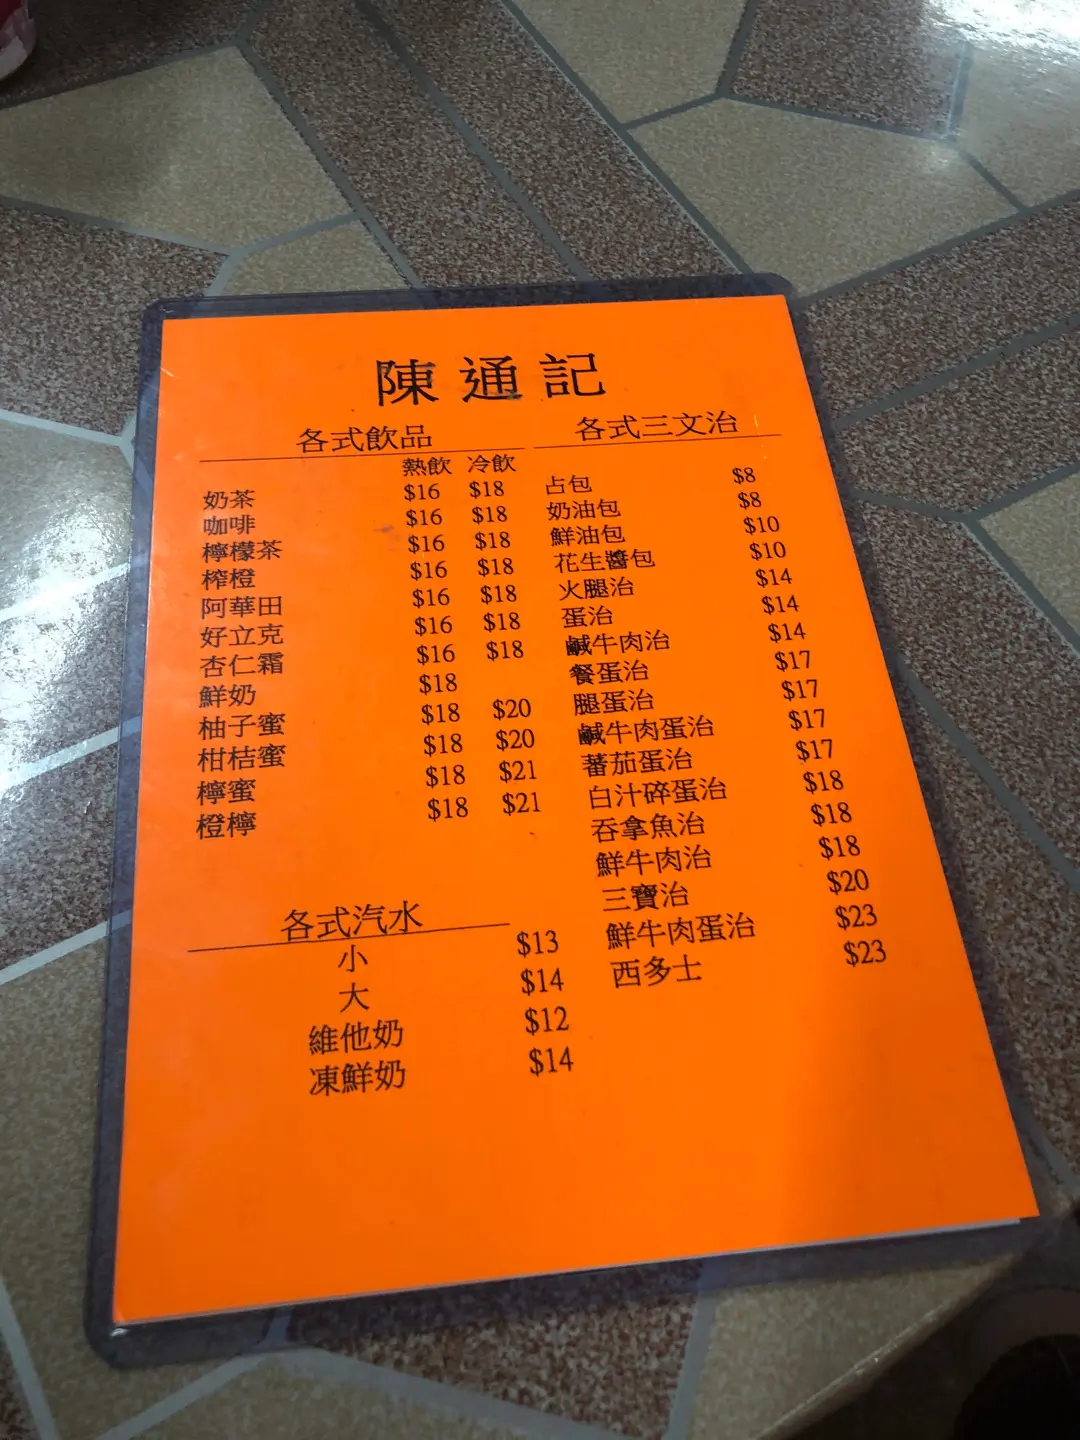 陳通記
各式飲品
熱飲 冷飲
奶茶 $16 $18
咖啡 $16 $18
檸檬茶 $16 $18
榨橙 $16 $18
阿華田 $16 $18
好立克 $16 $18
杏仁霜 $16 $18
鮮奶 $18
柚子蜜 $18 $20
柑桔蜜 $18 $20
檸蜜 $18 $21
橙檸 $18 $21
各式汽水
小 $13
大 $14
維他奶 $12
凍鮮奶 $14
各式三文治
占包 $8
奶油包 $8
鮮油包 $10
花生醬包 $10
火腿治 $14
蛋治 $14
鹹牛肉治 $14
餐蛋治 $17
腿蛋治 $17
鹹牛肉蛋治 $17
蕃茄蛋治 $17
白汁碎蛋治 $18
吞拿魚治 $18
鮮牛肉治 $18
三寶治 $20
鮮牛肉蛋治 $23
西多士 $23